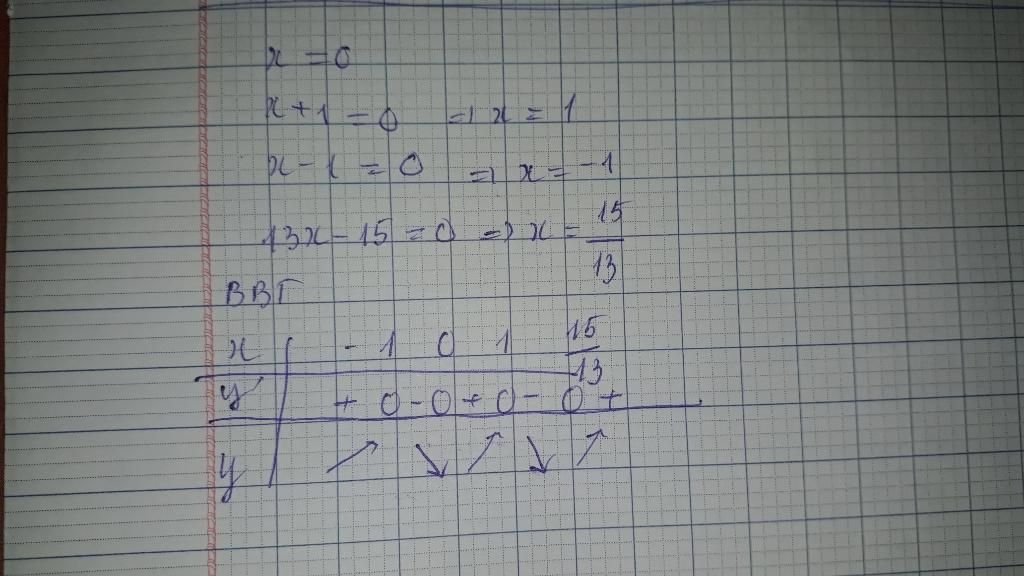 x = 0
x + 1 = 0 => x = 1
x - 1 = 0 => x = -1
13x - 15 = 0 => x = 15/13
BBT
x | -1 0 1 15/13
y' | + 0 - 0 + 0 - 0 +
y | ↗ ↘ ↗ ↘ ↗